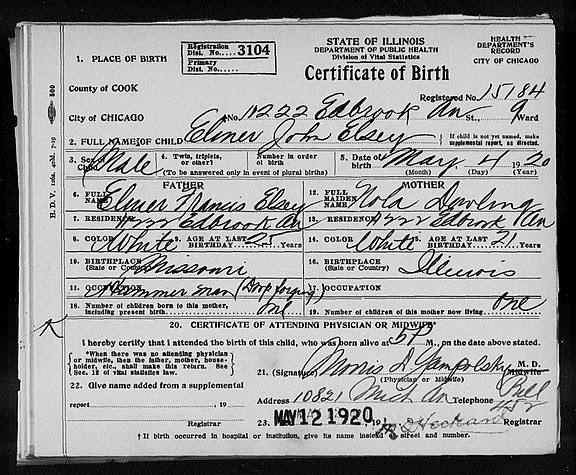 STATE OF ILLINOIS
DEPARTMENT OF PUBLIC HEALTH
Division of Vital Statistics
Certificate of Birth
HEALTH DEPARTMENT'S RECORD
CITY OF CHICAGO
1. PLACE OF BIRTH
Registration Dist. No. 3104
Primary Dist. No.
County of COOK
Registered No. 15184
City of CHICAGO No. 11222 Edbrook Av St., 9 Ward
2. FULL NAME OF CHILD Elmer John Elsey { If child is not yet named, make supplemental report, as directed.
3. Sex of Child Male 4. Twin, triplets, or other? Number in order of birth 5. Date of birth May 4 1920
(To be answered only in event of plural births) (Month) (Day) (Year)
FATHER MOTHER
6. FULL NAME Elmer Francis Elsey 12. FULL MAIDEN NAME Nola Dowling
7. RESIDENCE 11222 Edbrook Av 13. RESIDENCE 11222 Edbrook Av
8. COLOR White 9. AGE AT LAST BIRTHDAY 25 Years 14. COLOR White 15. AGE AT LAST BIRTHDAY 21 Years
10. BIRTHPLACE (State or Country) Missouri 16. BIRTHPLACE (State or Country) Illinois
11. OCCUPATION Hammer man (Drop forging) 17. OCCUPATION
18. Number of children born to this mother, including present birth One 19. Number of children of this mother now living One
20. CERTIFICATE OF ATTENDING PHYSICIAN OR MIDWIFE*
I hereby certify that I attended the birth of this child, who was born alive at M., on the date above stated.
{ *When there was no attending physician or midwife, then the father, mother, householder, etc., shall make this return. See Sec. 12 of vital statistics law. }
21. (Signature) Morris A Yampolski M. D.
Midwife
(Physician or Midwife)
22. Give name added from a supplemental
report 19
Address 10821 Mich Av Telephone Pull
Registrar
23. MAY 12 1920 19 Registrar
† If birth occurred in hospital or institution, give its name instead of street and number.